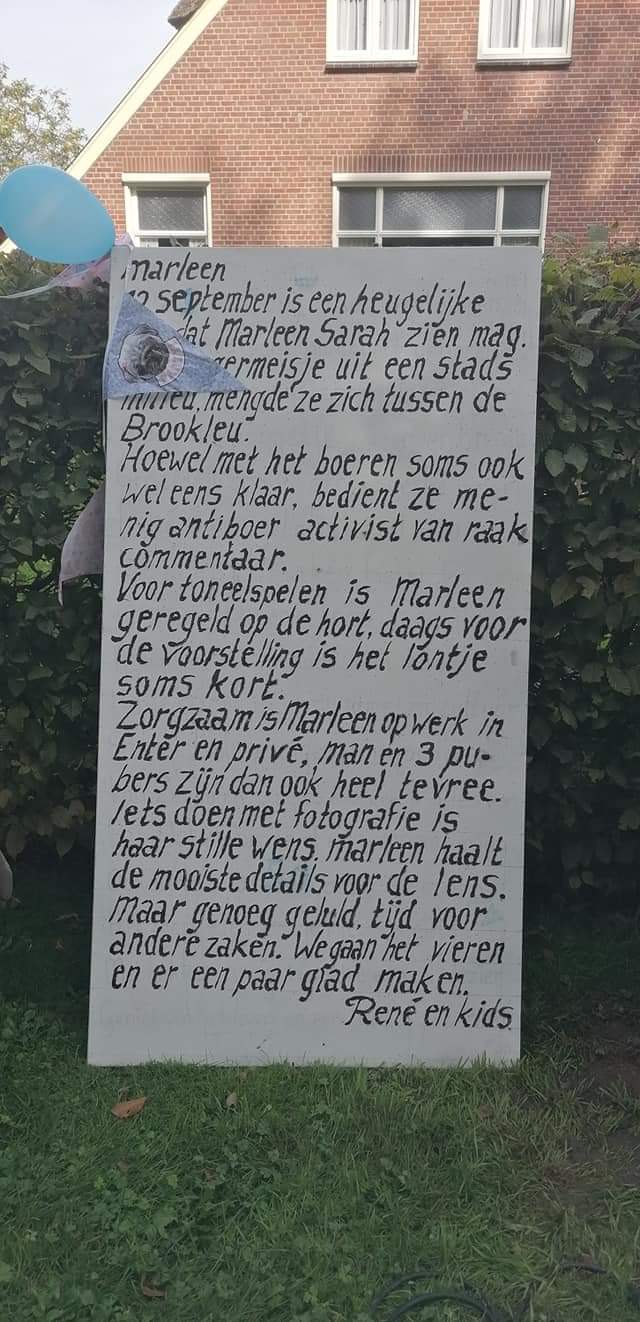 Marleen
september is een heugelijke
dat Marleen Sarah zien mag.
germeisje uit een stads
milieu, mengde ze zich tussen de
Brookleu.
Hoewel met het boeren soms ook
wel eens klaar, bedient ze me-
nig antiboer activist van raak
commentaar.
Voor toneelspelen is Marleen
geregeld op de hort, daags voor
de voorstelling is het lontje
soms kort.
Zorgzaam is Marleen op werk in
Enter en privé, man en 3 pu-
bers zijn dan ook heel tevree.
Iets doen met fotografie is
haar stille wens. Marleen haalt
de mooiste details voor de lens.
Maar genoeg geluld, tijd voor
andere zaken. We gaan het vieren
en er een paar glad maken.
René en kids